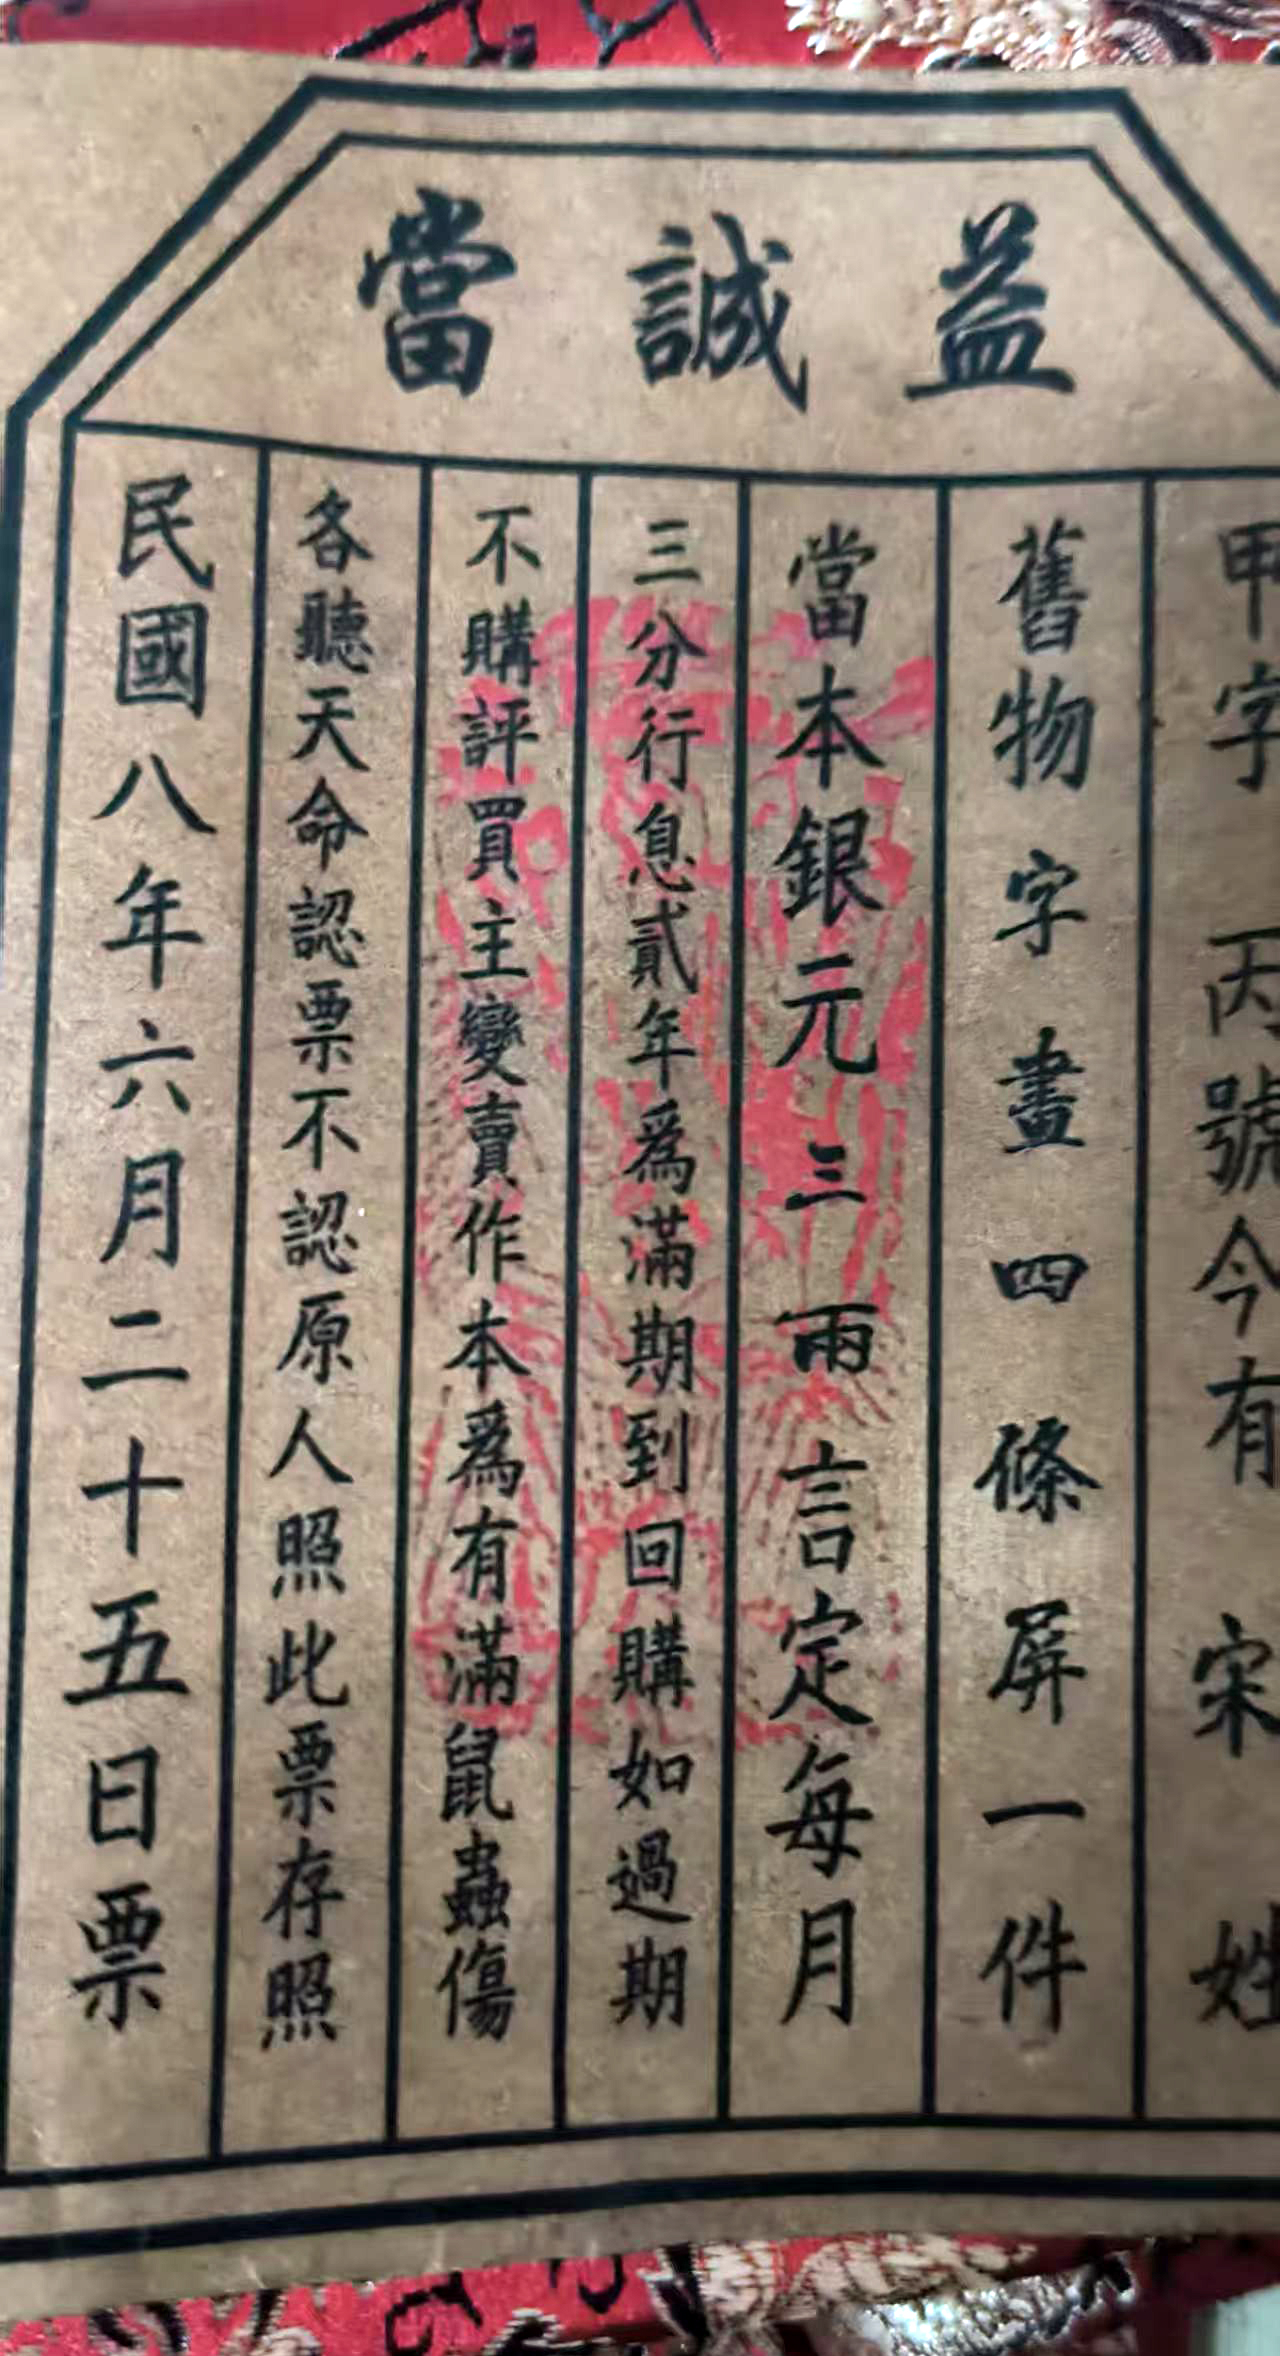 益誠當
甲字丙號今有宋姓
舊物字畫四條屏一件
當本銀元三雨言定每月
三分行息貳年為滿期到回購如過期
不購評買主變賣作本為有滿鼠蟲傷
各聽天命認票不認原人照此票存照
民國八年六月二十五日票